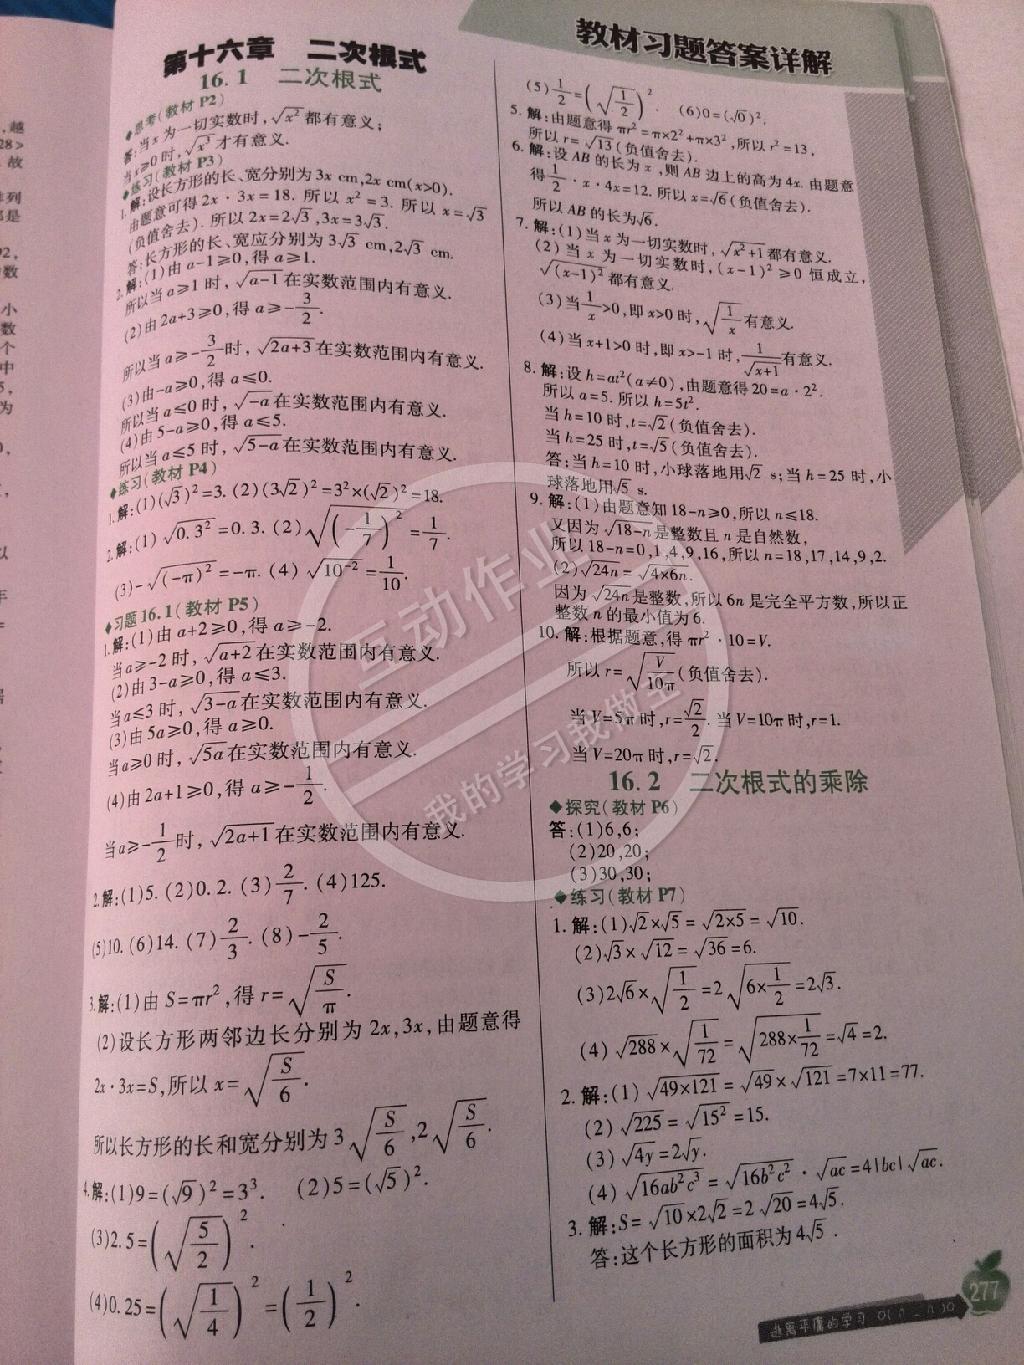 教材习题答案详解
第十六章 二次根式
16.1 二次根式
◆思考(教材 P2)
答:当x为一切实数时,√x²都有意义;
当x≥0时,√x³才有意义.
◆练习(教材 P3)
1.解:设长方形的长、宽分别为3x cm,2x cm(x>0).
由题意可得2x·3x=18.所以x²=3.所以x=√3
(负值舍去).所以2x=2√3,3x=3√3.
答:长方形的长、宽应分别为3√3 cm,2√3 cm.
2.解:(1)由a-1≥0,得a≥1.
所以当a≥1时,√(a-1)在实数范围内有意义.
(2)由2a+3≥0,得a≥-3/2.
所以当a≥-3/2时,√(2a+3)在实数范围内有意义.
(3)由-a≥0,得a≤0.
所以当a≤0时,√(-a)在实数范围内有意义.
(4)由5-a≥0,得a≤5.
所以当a≤5时,√(5-a)在实数范围内有意义.
◆练习(教材 P4)
1.解:(1)(√3)²=3.(2)(3√2)²=3²×(√2)²=18.
2.解:(1)√(0.3²)=0.3.(2)√((-1/7)²)=1/7.
(3)-√((-π)²)=-π.(4)√(10⁻²)=1/10.
◆习题16.1(教材 P5)
1.解:(1)由a+2≥0,得a≥-2.
当a≥-2时,√(a+2)在实数范围内有意义.
(2)由3-a≥0,得a≤3.
当a≤3时,√(3-a)在实数范围内有意义.
(3)由5a≥0,得a≥0.
当a≥0时,√(5a)在实数范围内有意义.
(4)由2a+1≥0,得a≥-1/2.
当a≥-1/2时,√(2a+1)在实数范围内有意义.
2.解:(1)5.(2)0.2.(3)2/7.(4)125.
(5)10.(6)14.(7)2/3.(8)-2/5.
3.解:(1)由S=πr²,得r=√(S/π).
(2)设长方形两邻边长分别为2x,3x,由题意得
2x·3x=S,所以x=√(S/6).
所以长方形的长和宽分别为3√(S/6),2√(S/6).
4.解:(1)9=(√9)²=3³. (2)5=(√5)².
(3)2.5=(√(5/2))².
(4)0.25=(√(1/4))²=(1/2)².
(5)1/2=(√(1/2))². (6)0=(√0)².
5.解:由题意得πr²=π×2²+π×3²,所以r²=13,
所以r=√13(负值舍去).
6.解:设AB的长为x,则AB边上的高为4x.由题意
得1/2·x·4x=12.所以x=√6(负值舍去).
所以AB的长为√6.
7.解:(1)当x为一切实数时,√(x²+1)都有意义.
(2)当x为一切实数时,(x-1)²≥0恒成立,
√((x-1)²)都有意义.
(3)当1/x>0,即x>0时,√(1/x)有意义.
(4)当x+1>0时,即x>-1时,1/√(x+1)有意义.
8.解:设h=at²(a≠0),由题意得20=a·2².
所以a=5.所以h=5t².
当h=10时,t=√2(负值舍去).
当h=25时,t=√5(负值舍去).
答:当h=10时,小球落地用√2 s;当h=25时,小
球落地用√5 s.
9.解:(1)由题意知18-n≥0,所以n≤18.
又因为√(18-n)是整数且n是自然数,
所以18-n=0,1,4,9,16,所以n=18,17,14,9,2.
(2)√(24n)=√(4×6n).
因为√(24n)是整数,所以6n是完全平方数,所以正
整数n的最小值为6.
10.解:根据题意,得πr²·10=V.
所以r=√(V/10π)(负值舍去).
当V=5π时,r=√2/2.当V=10π时,r=1.
当V=20π时,r=√2.
16.2 二次根式的乘除
◆探究(教材 P6)
答:(1)6,6;
(2)20,20;
(3)30,30;
◆练习(教材 P7)
1.解:(1)√2×√5=√(2×5)=√10.
(2)√3×√12=√36=6.
(3)2√6×√(1/2)=2√(6×1/2)=2√3.
(4)√288×√(1/72)=√(288×1/72)=√4=2.
2.解:(1)√(49×121)=√49×√121=7×11=77.
(2)√225=√(15²)=15.
(3)√(4y)=2√y.
(4)√(16ab²c³)=√(16b²c²)·√(ac)=4|bc|√(ac).
3.解:S=√10×2√2=2√20=4√5.
答:这个长方形的面积为4√5.
277
互动作业
我的学习我做主